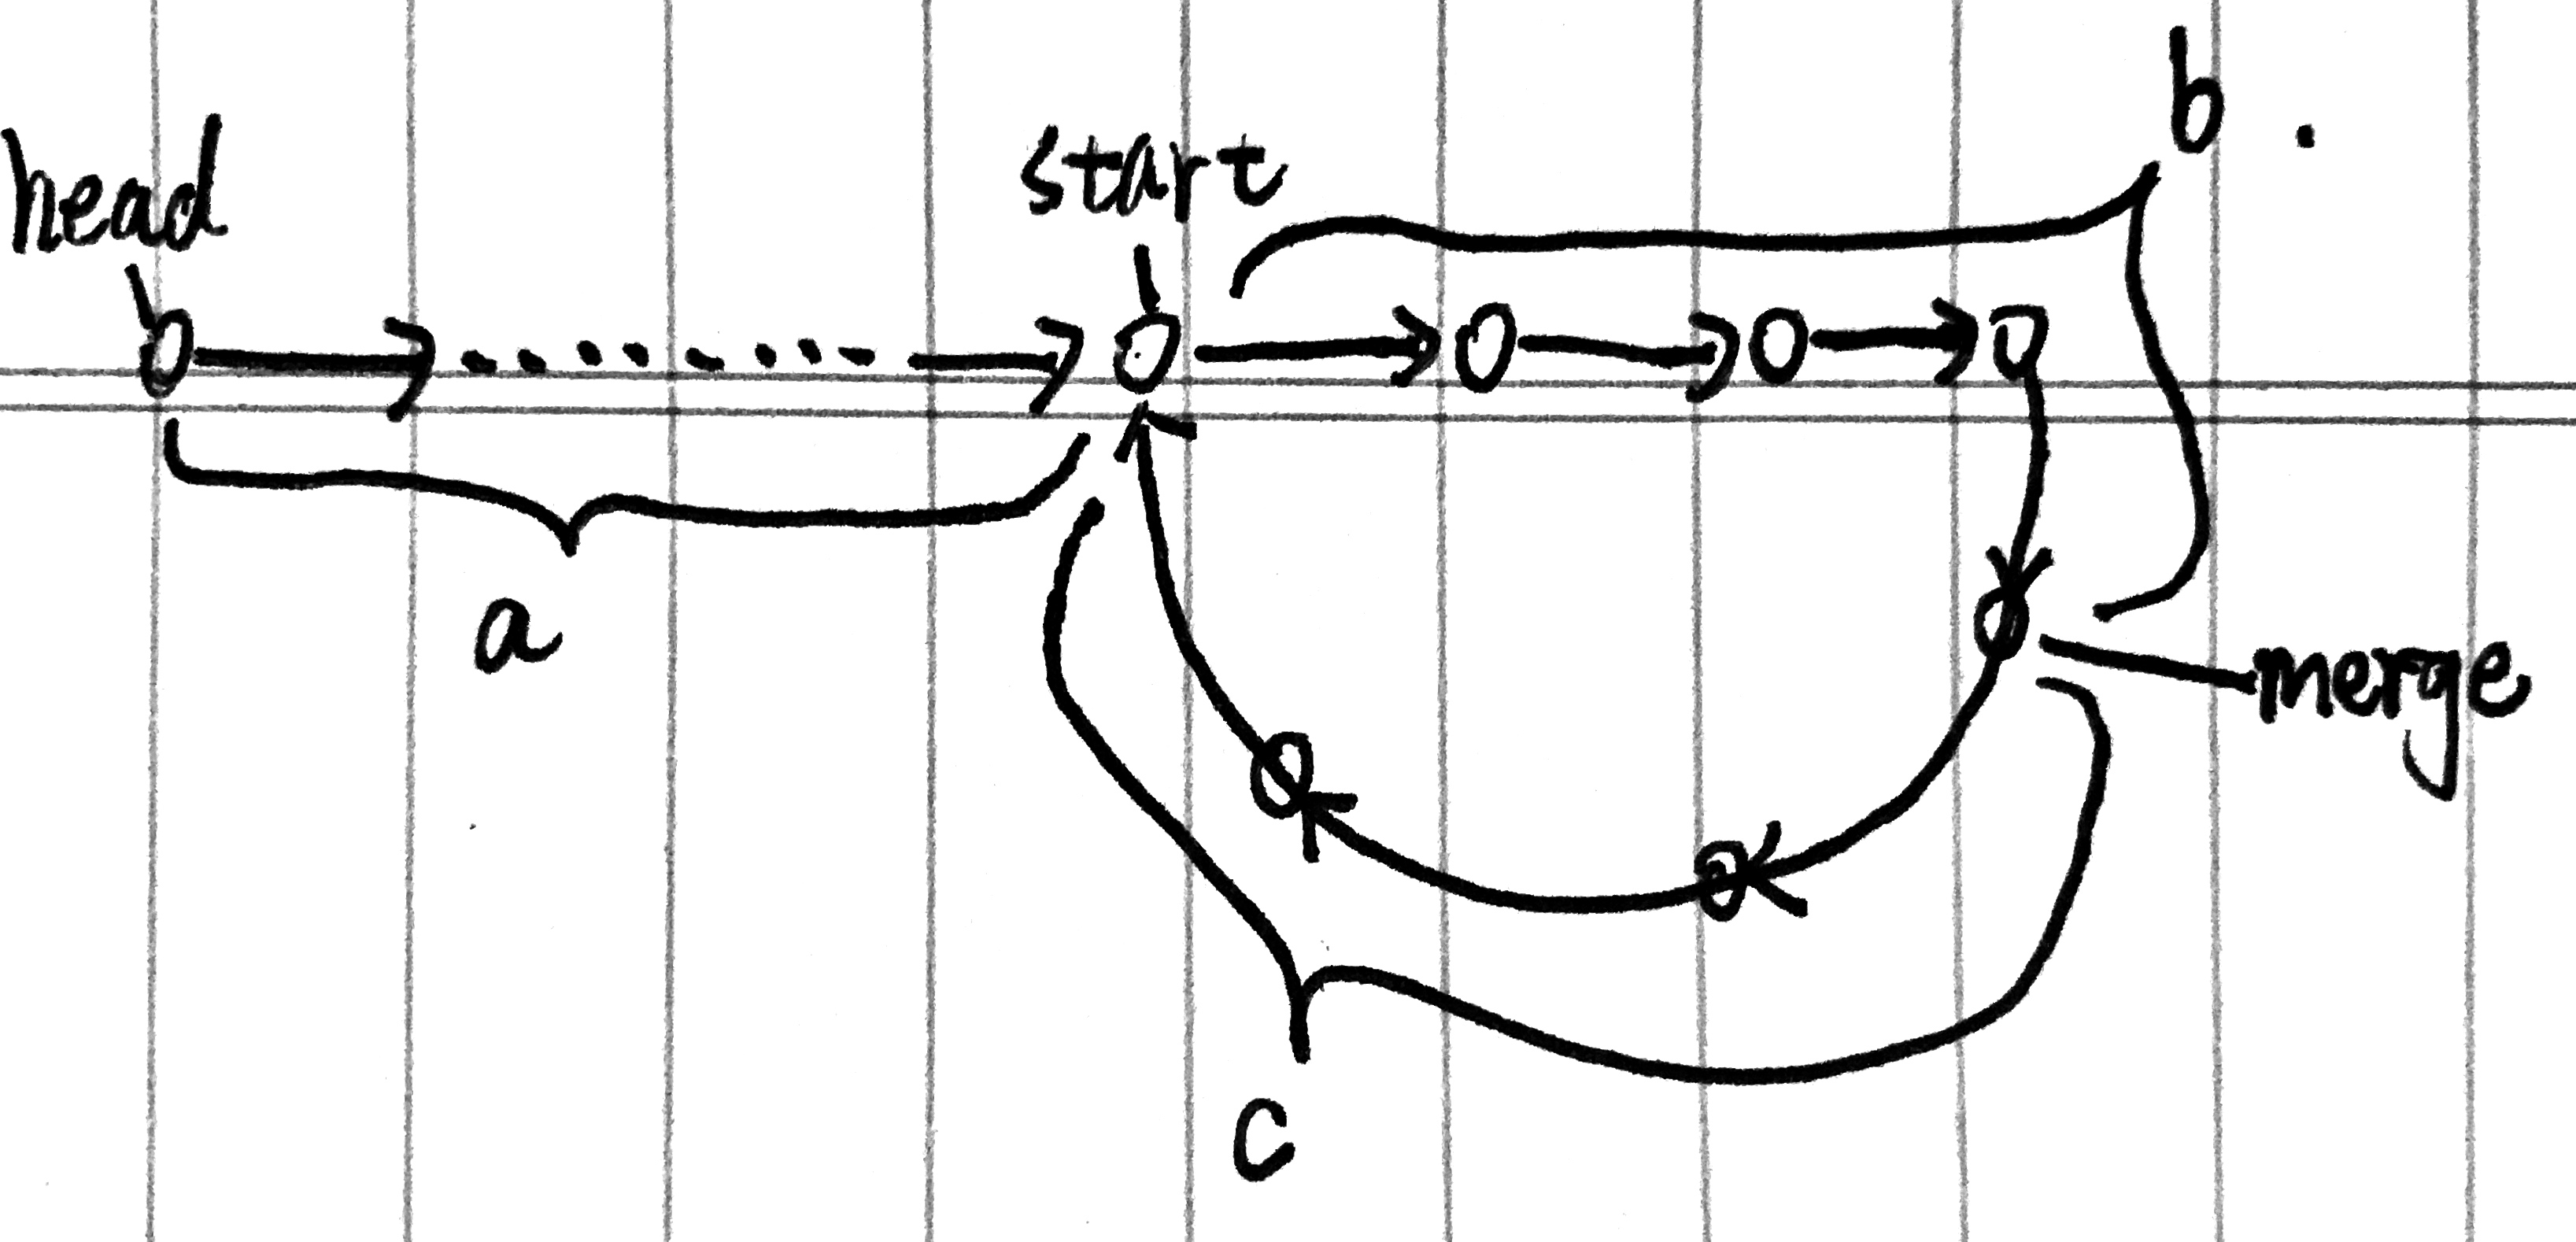 head
start
b
a
merge
c